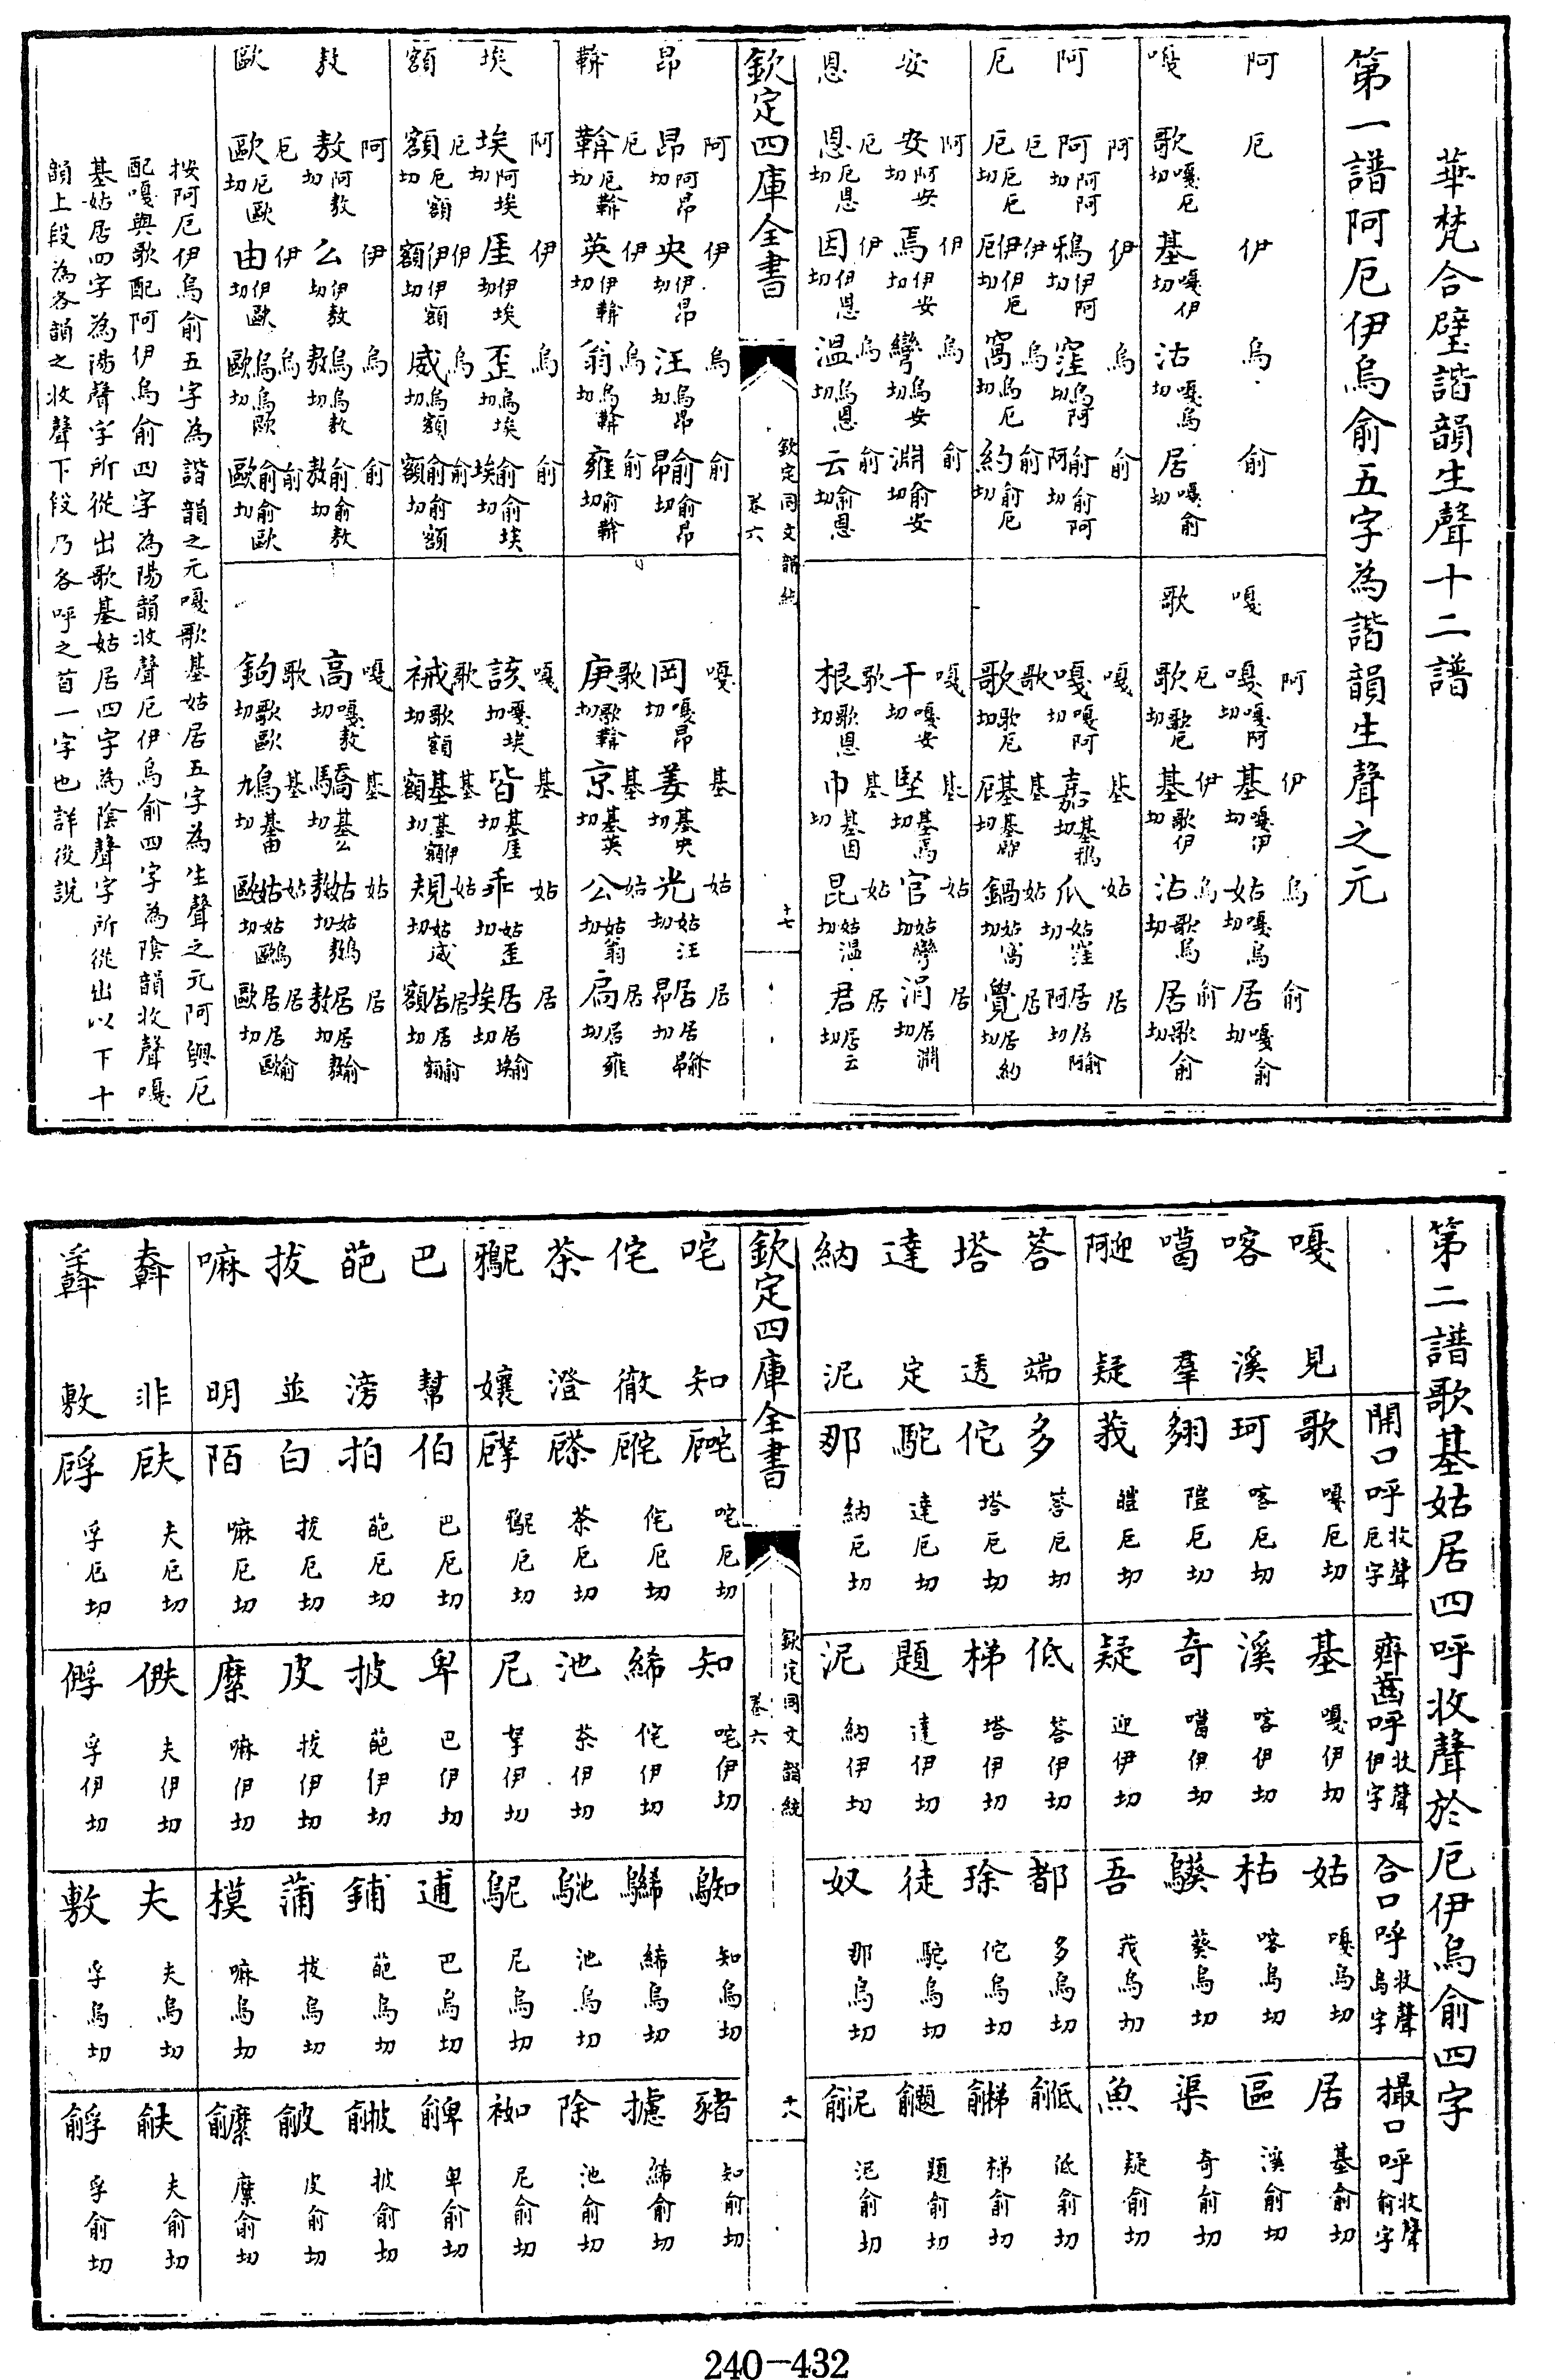 華梵合璧諧韻生聲十二譜
第一譜阿厄伊烏俞五字為諧韻生聲之元
阿 厄 伊 烏 俞
嘎 歌嘎厄切 基嘎伊切 沽嘎烏切 居嘎俞切
嘎 阿 嘎嘎阿切 伊 基嘎伊切 烏 姑嘎烏切 俞 居嘎俞切
歌 厄 歌歌厄切 伊 基歌伊切 烏 沽歌烏切 俞 居歌俞切
阿 阿 阿阿阿切 伊 鴉伊阿切 烏 窪烏阿切 俞 俞阿切
厄 厄 厄厄厄切 伊 伊厄切 烏 窩烏厄切 俞 約俞厄切
嘎 嘎嘎阿切 基 嘉基鴉切 姑 瓜姑窪切 居 居
歌 歌歌厄切 基 基 姑 鍋姑窩切 居 覺居約切
安 阿 安阿安切 伊 焉伊安切 烏 彎烏安切 俞 淵俞安切
恩 厄 恩厄恩切 伊 因伊恩切 烏 溫烏恩切 俞 云俞恩切
嘎 干嘎安切 基 堅基焉切 姑 官姑彎切 居 涓居淵切
歌 根歌恩切 基 巾基因切 姑 昆姑溫切 居 君居云切
欽定四庫全書
欽定同文韻統
卷六
十七
昂 阿 昂阿昂切 伊 央伊昂切 烏 汪烏昂切 俞 俞昂切
鞥 厄 鞥厄鞥切 伊 英伊鞥切 烏 翁烏鞥切 俞 雍俞鞥切
嘎 岡嘎昂切 基 姜基央切 姑 光姑汪切 居 居
歌 庚歌鞥切 基 京基英切 姑 公姑翁切 居 扃居雍切
埃 阿 埃阿埃切 伊 厓伊埃切 烏 歪烏埃切 俞 俞埃切
額 厄 額厄額切 伊 伊額切 烏 威烏額切 俞 俞額切
嘎 該嘎埃切 基 皆基厓切 姑 乖姑歪切 居 居
歌 祴歌額切 基 基 姑 規姑威切 居 居
敖 阿 敖阿敖切 伊 么伊敖切 烏 烏敖切 俞 俞敖切
歐 厄 歐厄歐切 伊 由伊歐切 烏 烏歐切 俞 俞歐切
嘎 高嘎敖切 基 驕基么切 姑 姑 居 居
歌 鉤歌歐切 基 鳩基由切 姑 姑 居 居
按阿厄伊烏俞五字為諧韻之元嘎歌基姑居五字為生聲之元阿與厄
配嘎與歌配阿伊烏俞四字為陽韻收聲厄伊烏俞四字為陰韻收聲嘎
基姑居四字為陽聲字所從出歌基姑居四字為陰聲字所從出以下十
韻上段為各韻之收聲下段乃各呼之首一字也詳後說
第二譜歌基姑居四呼收聲於厄伊烏俞四字
開口呼收聲厄字 齊齒呼收聲伊字 合口呼收聲烏字 撮口呼收聲俞字
嘎 見 歌嘎厄切 基嘎伊切 姑嘎烏切 居基俞切
喀 溪 珂喀厄切 溪喀伊切 枯喀烏切 區溪俞切
噶 羣 厄切 奇噶伊切 葵烏切 渠奇俞切
疑 莪皚厄切 疑迎伊切 吾莪烏切 魚疑俞切
荅 端 多荅厄切 低荅伊切 都多烏切 低俞切
塔 透 佗塔厄切 梯塔伊切 珠佗烏切 梯俞切
達 定 駝達厄切 題達伊切 徒駝烏切 題俞切
納 泥 那納厄切 泥納伊切 奴那烏切 泥俞切
欽定四庫全書
欽定同文韻統
卷六
十八
咤 知 咤厄切 知咤伊切 知烏切 豬知俞切
侘 徹 侘厄切 絺侘伊切 絺烏切 攄絺俞切
茶 澄 茶厄切 池茶伊切 池烏切 除池俞切
孃 厄切 尼拏伊切 尼烏切 袽尼俞切
巴 幫 伯巴厄切 卑巴伊切 逋巴烏切 卑俞切
葩 滂 拍葩厄切 披葩伊切 鋪葩烏切 披俞切
拔 並 白拔厄切 皮拔伊切 蒲拔烏切 皮俞切
嘛 明 陌嘛厄切 糜嘛伊切 模嘛烏切 糜俞切
非 夫厄切 夫伊切 夫夫烏切 夫俞切
敷 孚厄切 孚伊切 敷孚烏切 孚俞切
240-432